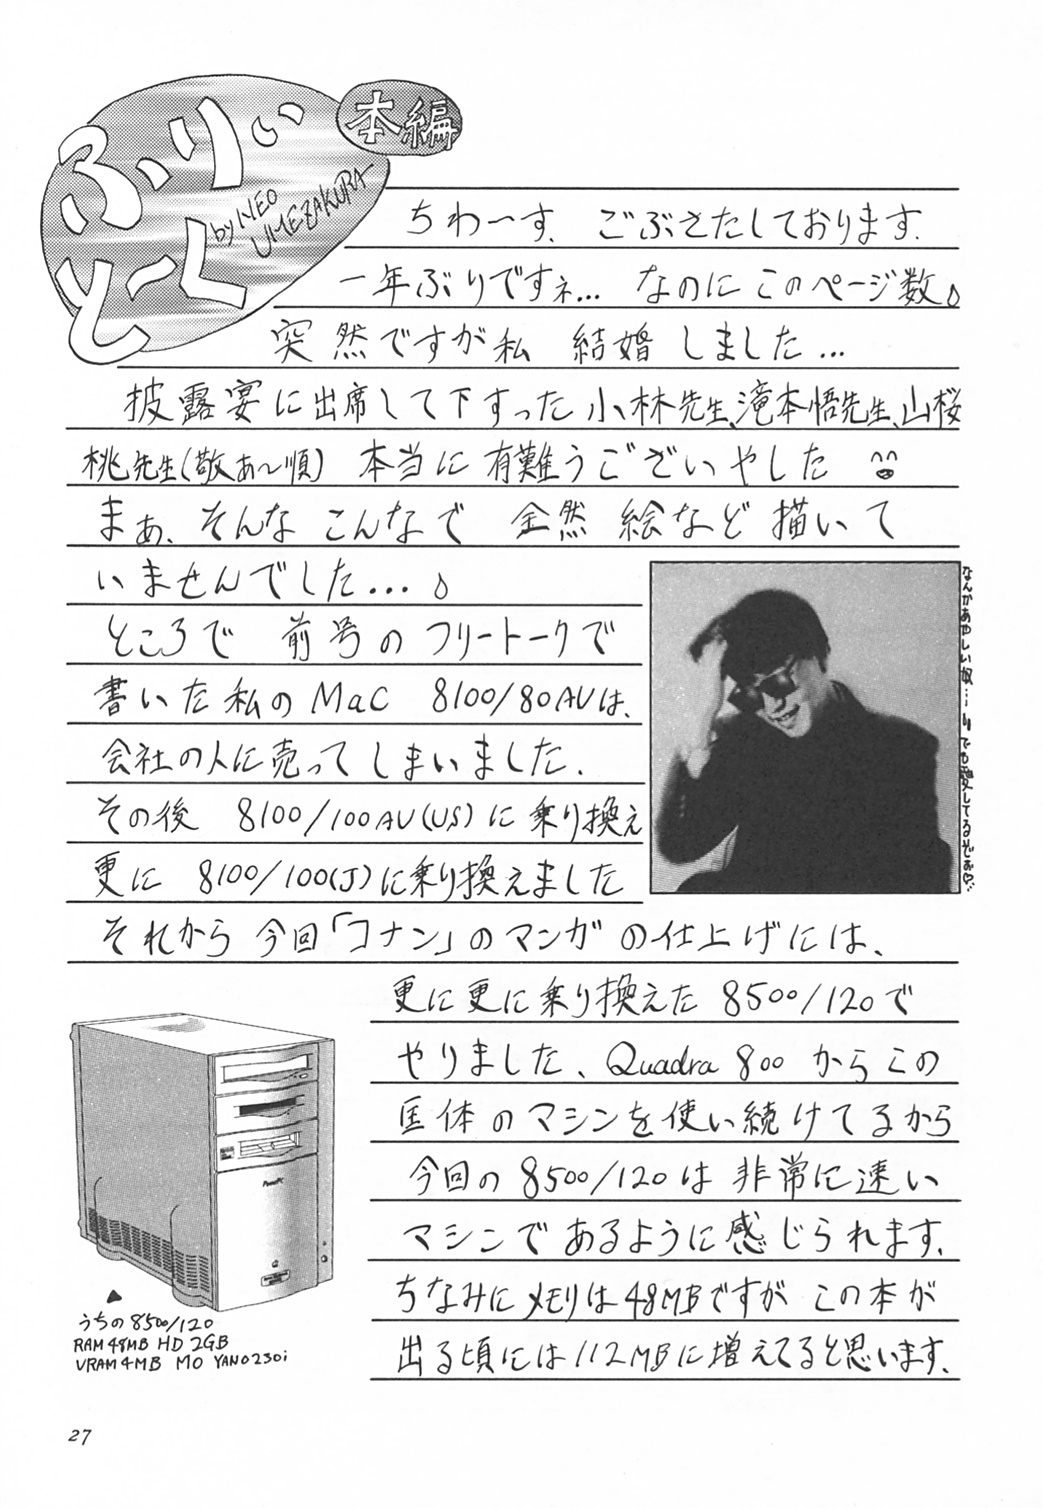 ふりぃ
とーく
本編
by NEO
UMEZAKURA
ちわーす、ごぶさたしております。
一年ぶりですネ… なのにこのページ数。
突然ですが私 結婚しました…
披露宴に出席して下すった小林先生、滝本悟先生、山桜
桃先生(敬あ〜順) 本当に有難うございやした
まぁ、そんなこんなで 全然 絵など描いて
いませんでした…。
ところで 前号のフリートークで
書いた私のMac 8100/80AVは、
会社の人に売ってしまいました。
その後 8100/100AV(US)に乗り換え
更に 8100/100(J)に乗り換えました
それから今回「コナン」のマンガの仕上げには、
更に更に乗り換えた 8500/120で
やりました、Quadra 800 からこの
匡体のマシンを使い続けてるから
今回の8500/120は非常に速い
マシンであるように感じられます。
ちなみにメモリは48MBですが この本が
出る頃には112MBに増えてると思います。
なんかあやしい奴…… でも愛してるぞぉ♡
PowerPC
うちの8500/120
RAM48MB HD2GB
VRAM4MB MO YANO230i
27